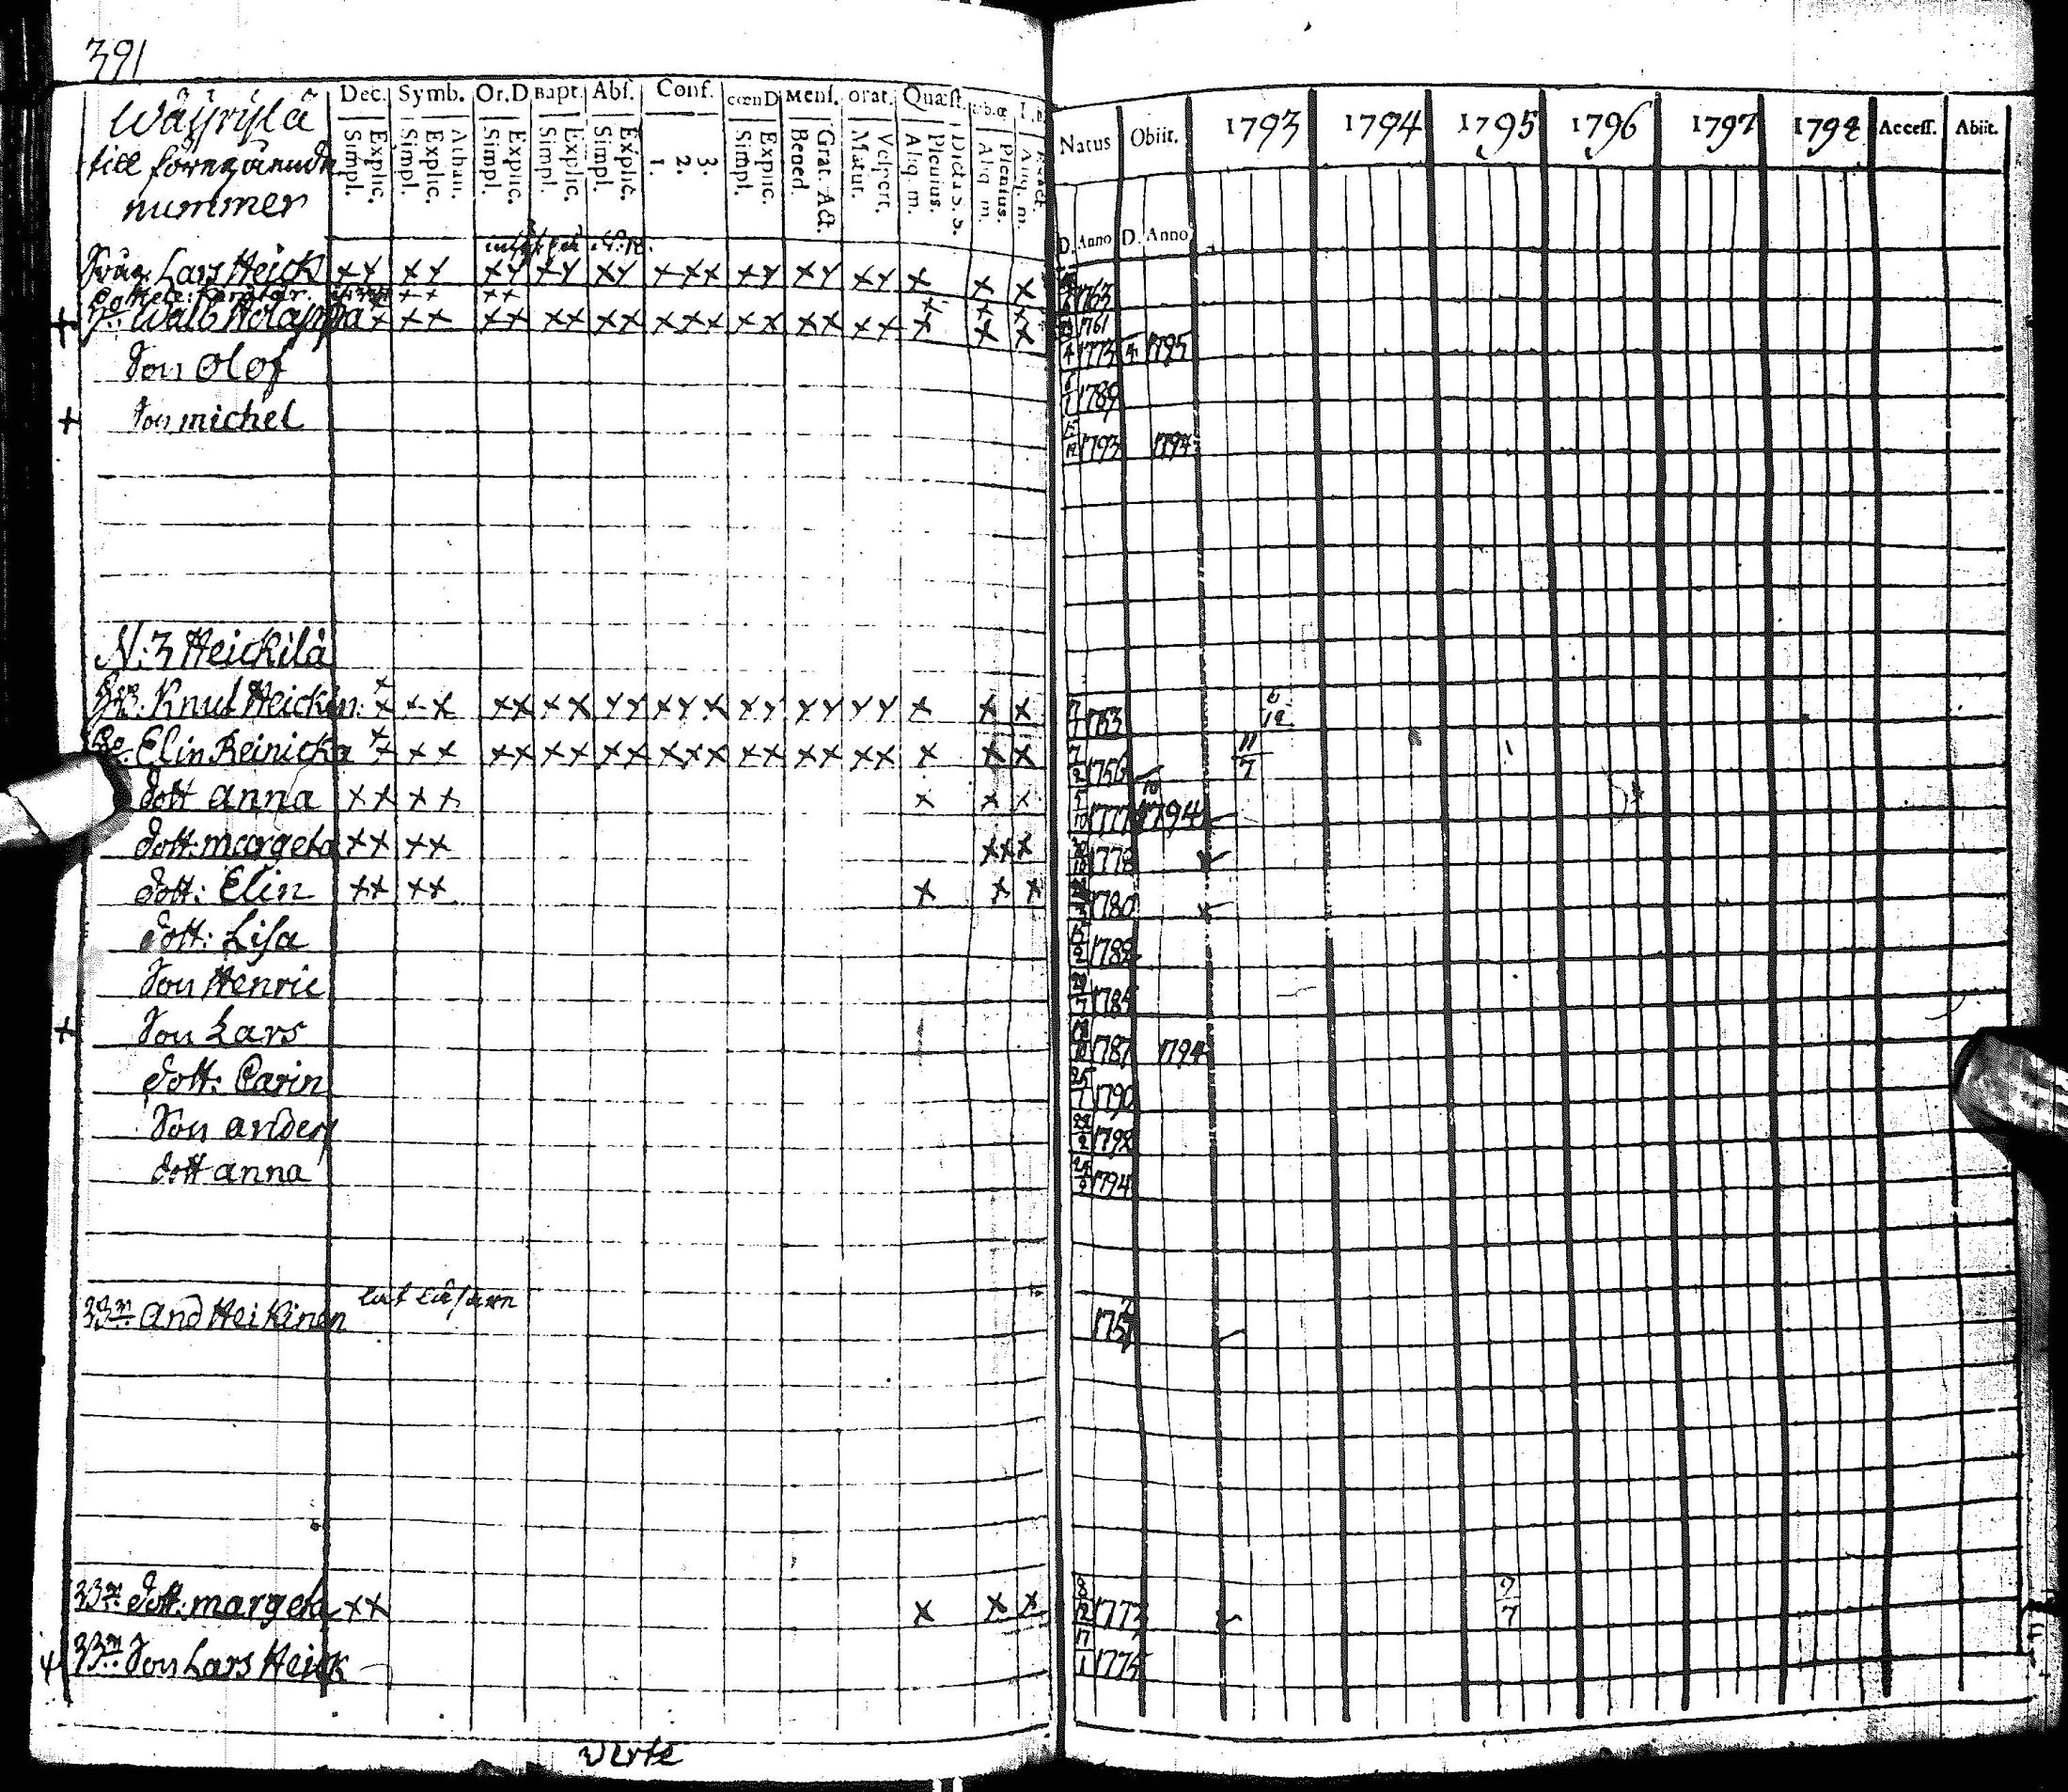 391
Wäyrylä
till föregåennde
nummer
Dec. Symb. Or.D Bapt. Abs. Conf. cœnD Mens. Orat. Quæst.
Simpl. Explic. Simpl. Explic. Athan. Simpl. Explic. Simpl. Explic. Simpl. Explic. 1. 2. 3. Simpl. Explic. Bened. Grat. Act. Matut. Vespert. Aliq. m. Plenius. Dicta S. S. Aliq. m. Plenius. Aliq. m.
Natus Obiit. 1793 1794 1795 1796 1797 1798 Access. Abiit.
D. Anno D. Anno
Lars Heick xx xx xx xx xx xxx xx xx xx x x x 1763
1761
Walb Holappa x xx xx xx xx xxx xx xx xx x x x 4 1773 1795
Son Olof 1 1789
+ Son michel 1793 1794
N:3 Heickilä
Knut Heickin: x x x xx xx xx xxx xx xx xx x x x 1753 6 12
Elin Reinicka x xx xx xx xx xxx xx xx xx x x x 7 2 1756 11 7
dott anna xx xx x x x 10 1777 1794
dott: margeta xx xx xxx 1778
dott: Elin xx xx x x x 1780
dott: Lisa 1782
Son Henric 7 1785
+ Son Lars 1787 1794
dott: Carin 1790
Son anders 2 1792
dott anna 1794
And Heikinen
dott: margeta xx x x x 8 12 1773 7 7
Son Lars Heick 17 1 1775
verte